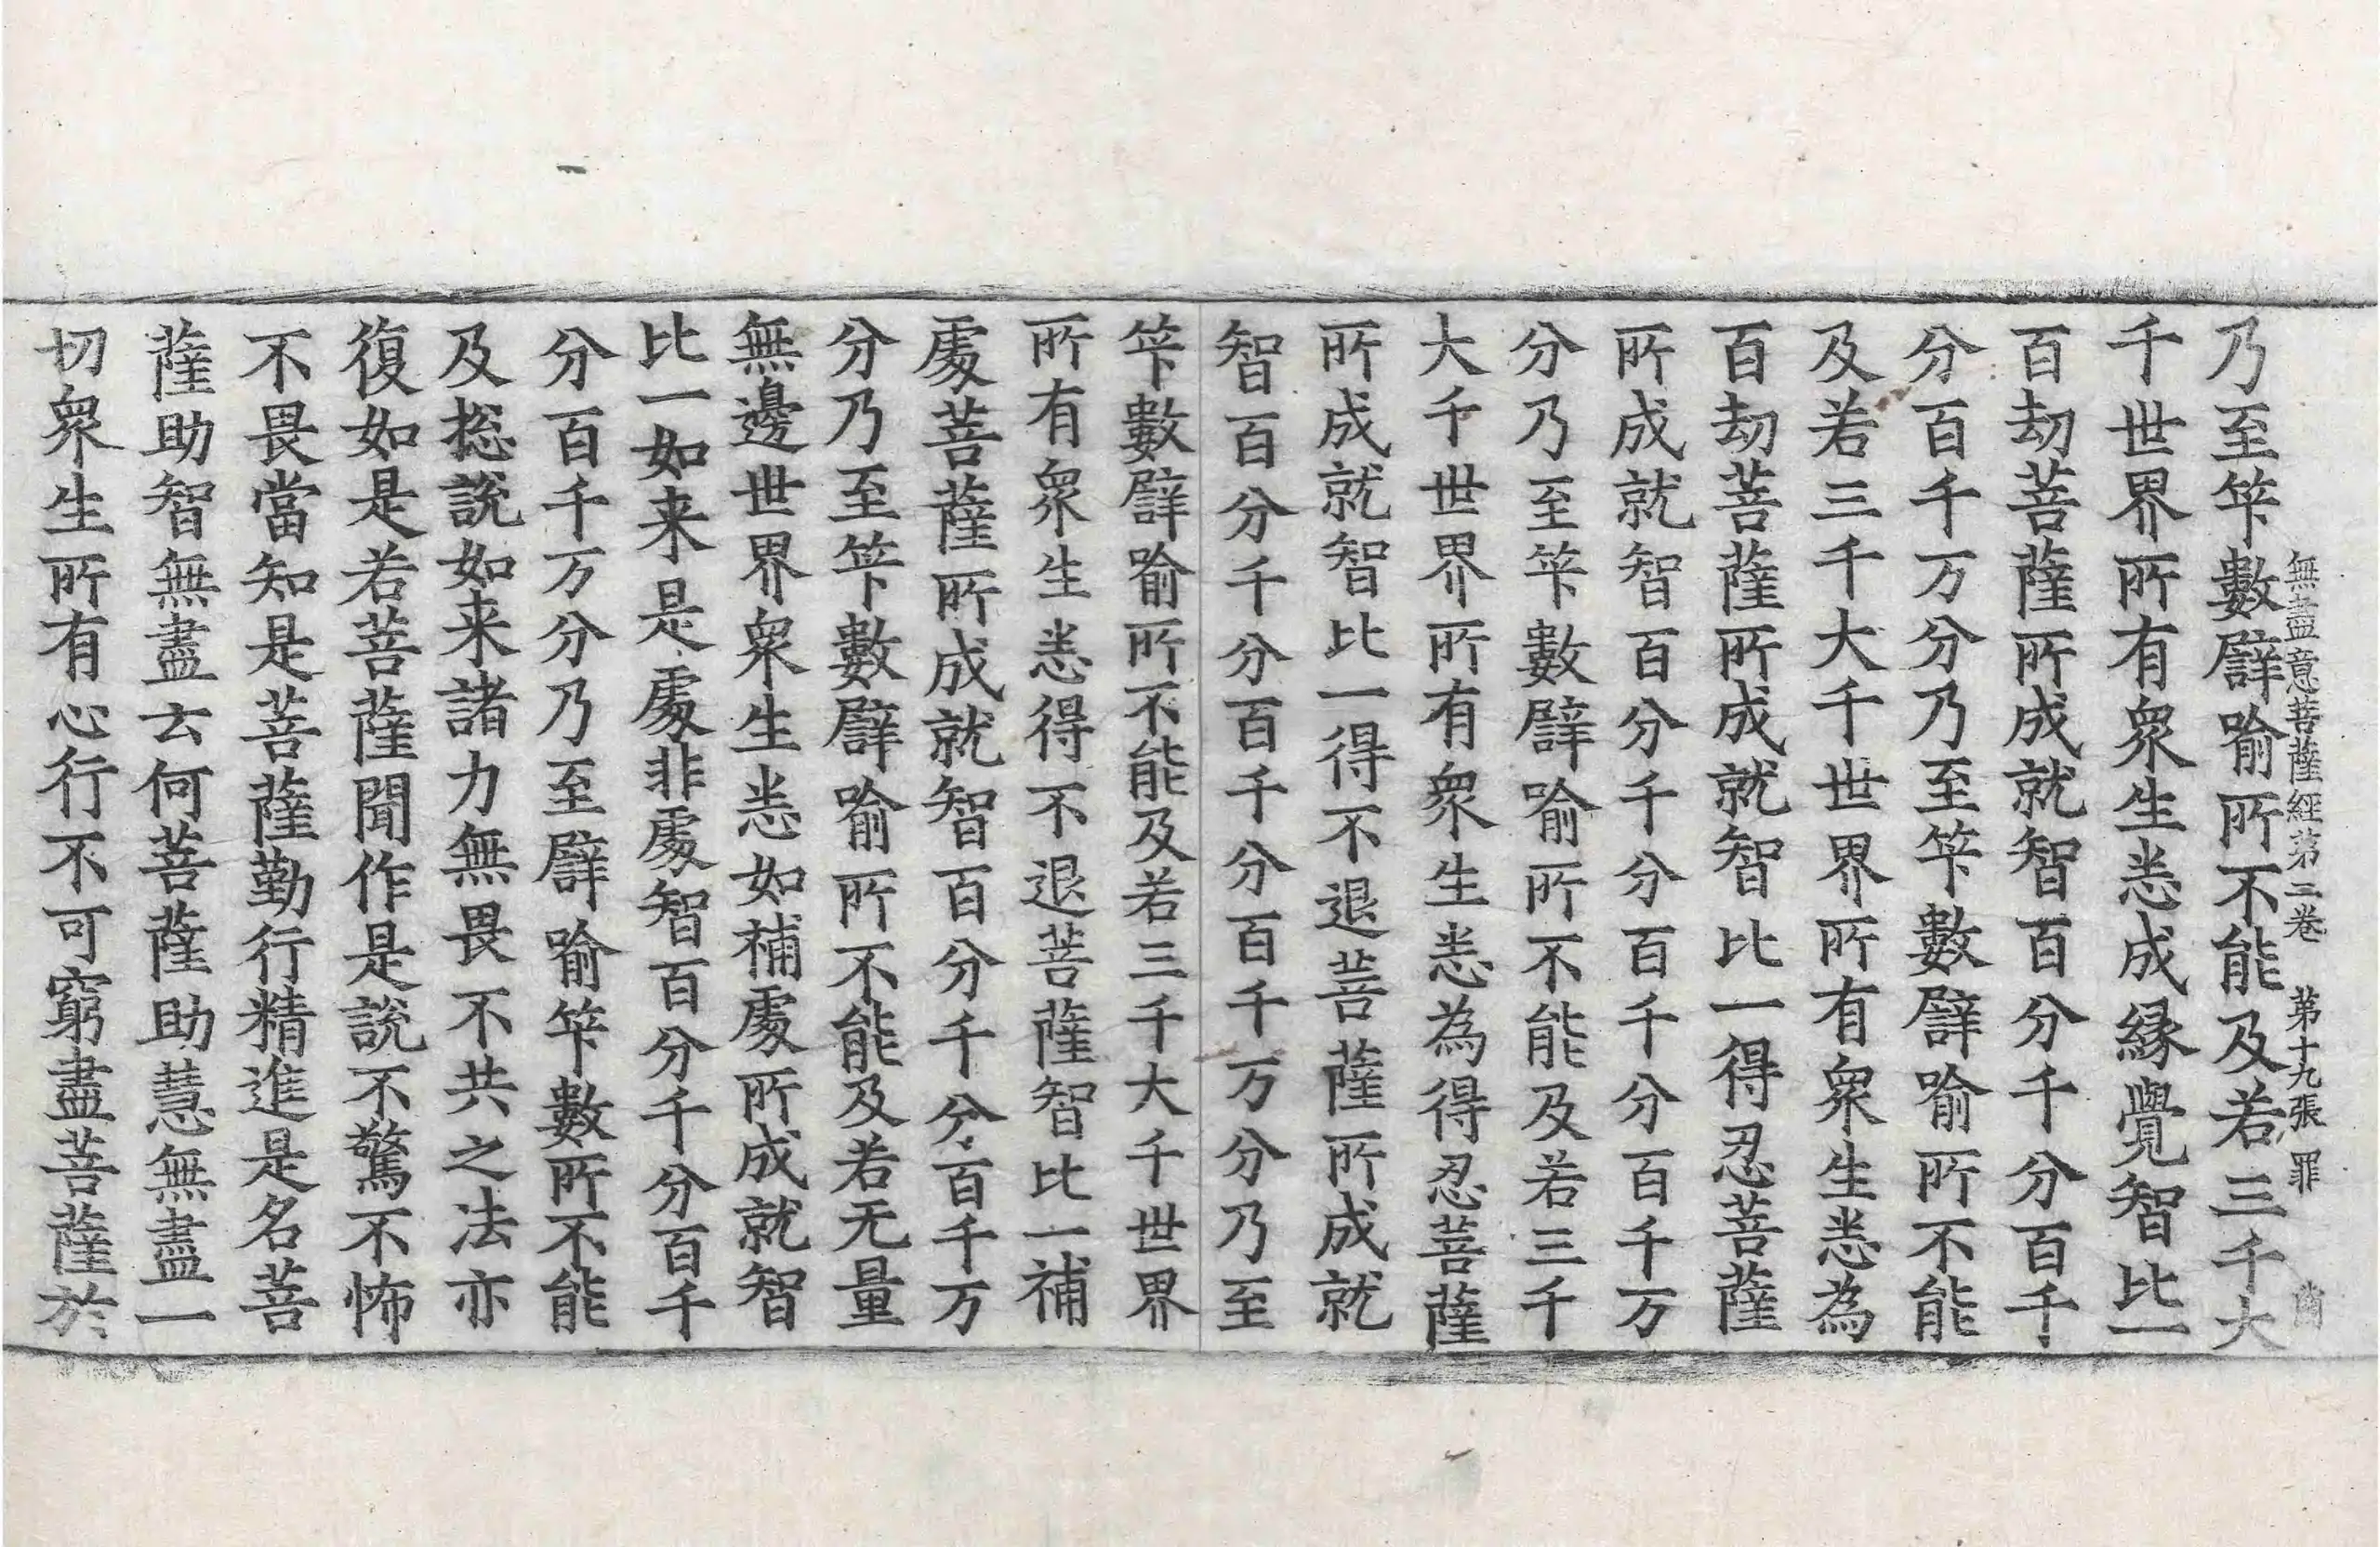 無盡意菩薩經第二卷 第十九張 罪
乃至笇數譬喻所不能及若三千大
千世界所有衆生悉成縁覺智比一
百劫菩薩所成就智百分千分百千
分百千万分乃至笇數譬喻所不能
及若三千大千世界所有衆生悉為
百劫菩薩所成就智比一得忍菩薩
所成就智百分千分百千分百千万
分乃至笇數譬喻所不能及若三千
大千世界所有衆生悉為得忍菩薩
所成就智比一得不退菩薩所成就
智百分千分百千分百千万分乃至
笇數譬喻所不能及若三千大千世界
所有衆生悉得不退菩薩智比一補
處菩薩所成就智百分千分百千万
分乃至笇數譬喻所不能及若无量
無邊世界衆生悉如補處所成就智
比一如来是處非處智百分千分百千
分百千万分乃至譬喻笇數所不能
及揔說如来諸力無畏不共之法亦
復如是若菩薩聞作是說不驚不怖
不畏當知是菩薩勤行精進是名菩
薩助智無盡云何菩薩助慧無盡一
切衆生所有心行不可窮盡菩薩於